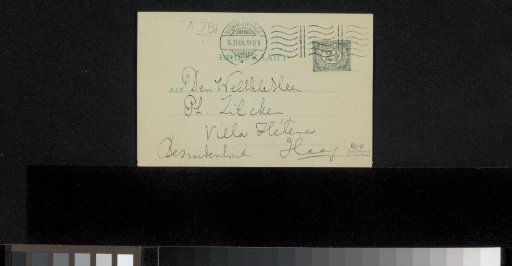 BRIEFKAART
AAN Den WelEdelHeer
Ph. Zilcken
Villa Hélène
Bezuidenhout Haag